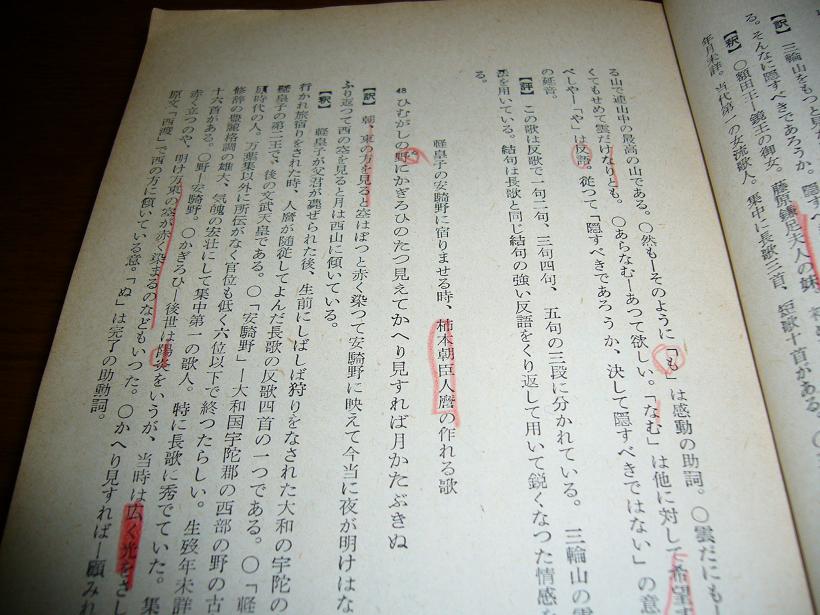 【訳】三輪山をもつと
る。そんなに隠すべきであろうか。隠すべ
【釈】○額田王ー鏡王の御女。藤原鎌足夫人の妹。
年月未詳。当代第一の女流歌人。集中に長歌三首、短歌十首がある。
る山で連山中の最高の山である。○然もーそのように「も」は感動の助詞。○雲だにも
くてもせめて雲だけなりとも。○あらなむーあつて欲しい。「なむ」は他に対して希望
べしやー「や」は反語。従つて「隠すべきであろうか、決して隠すべきではない」の意
の延音。
【評】この歌は反歌で一句二句、三句四句、五句の三段に分かれている。三輪山の雲
法を用いている。結句は長歌と同じ結句の強い反語をくり返して用いて鋭くなつた情感を
る。
軽皇子の安騎野に宿りませる時、柿本朝臣人麿の作れる歌
48 ひむがしの野にかぎろひのたつ見えてかへり見すれば月かたぶきぬ
【訳】朝、東の方を見ると空はぽつと赤く染つて安騎野に映えて今当に夜が明けはな
ふり返つて西の空を見ると月は西山に傾いている。
【釈】軽皇子が父君が薨ぜられた後、生前にしばしば狩りをなされた大和の宇陀の
行かれ旅宿りをされた時、人麿が随従してよんだ長歌の反歌四首の一つである。○「軽
壁皇子の第二王で、後の文武天皇である。○「安騎野」ー大和国宇陀郡の西部の野の古
原時代の人。万葉集以外に所伝がなく官位も低く六位以下で終つたらしい。生歿年未詳
修辞の豊麗格調の雄大、気魄の安壮にして集中第一の歌人。特に長歌に秀でていた。集
十六首がある。○野ー安騎野。○かぎろひー後世は陽炎をいうが、当時は広く光をさし
赤く立つのや、明け方東の空が赤く染まるのなどもいつた。○かへり見すればー顧みれ
原文「西渡」で西の方に傾いている意。「ぬ」は完了の助動詞。